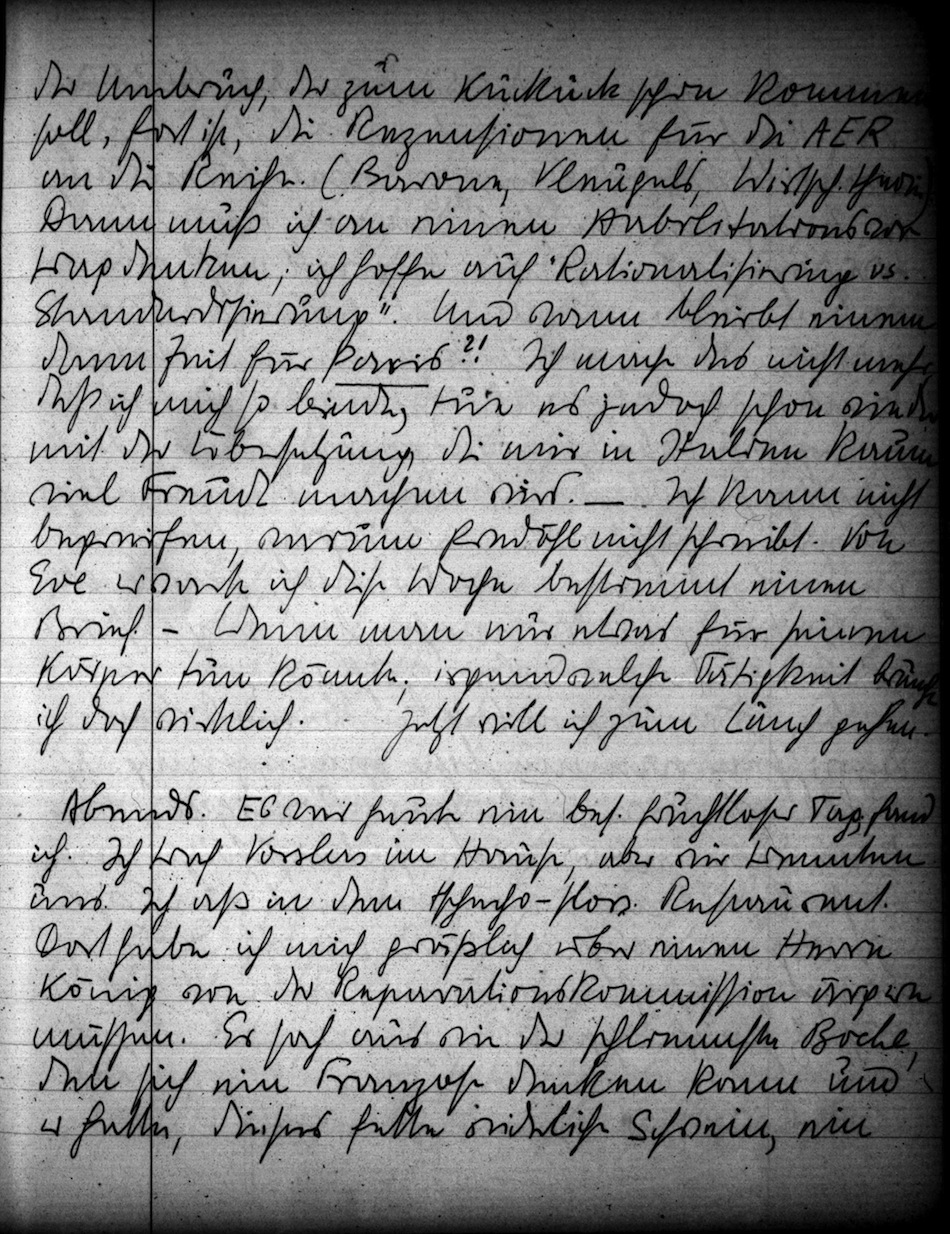 der Umbruch, der zum Kuckuck schon kommen
soll, fort ist, die Rezensionen für die AER
an die Reihe. (Barone, Vleugels, Wirtsch. theorie)
Dann muß ich an einen Habilitationsvor-
trag denken, ich hoffe auf "Rationalisierung vs.
Standardisierung". Und wann bleibt einem
dann Zeit für Paris?! Ich mache das nicht mehr,
daß ich mich so binde, tue es jedoch schon wieder
mit der Übersetzung, die mir in Italien kaum
viel Freude machen wird. — Ich kann nicht
begreifen, warum nicht schreibt. Von
Eve erwarte ich diese Woche bestimmt einen
Brief. – Wenn man nur etwas für seinen
Körper tun könnte, irgendwelche Tätigkeit brauche
ich doch wirklich. Jetzt will ich zum Lunch gehen.
Abends. Es war heute ein bes. fruchtloser Tag, fand
ich. Ich traf Vosslers im Hause, aber wir trennten
uns. Ich aß in dem tschecho-slow. Restaurant.
Dort habe ich mich gräßlich über einen Herrn
König von der Reparationskommission ärgern
müssen. Er sah aus wie der schlimmste Boche,
den sich ein Franzose denken kann und
er hatte, dieses fette widerliche Schwein, ein